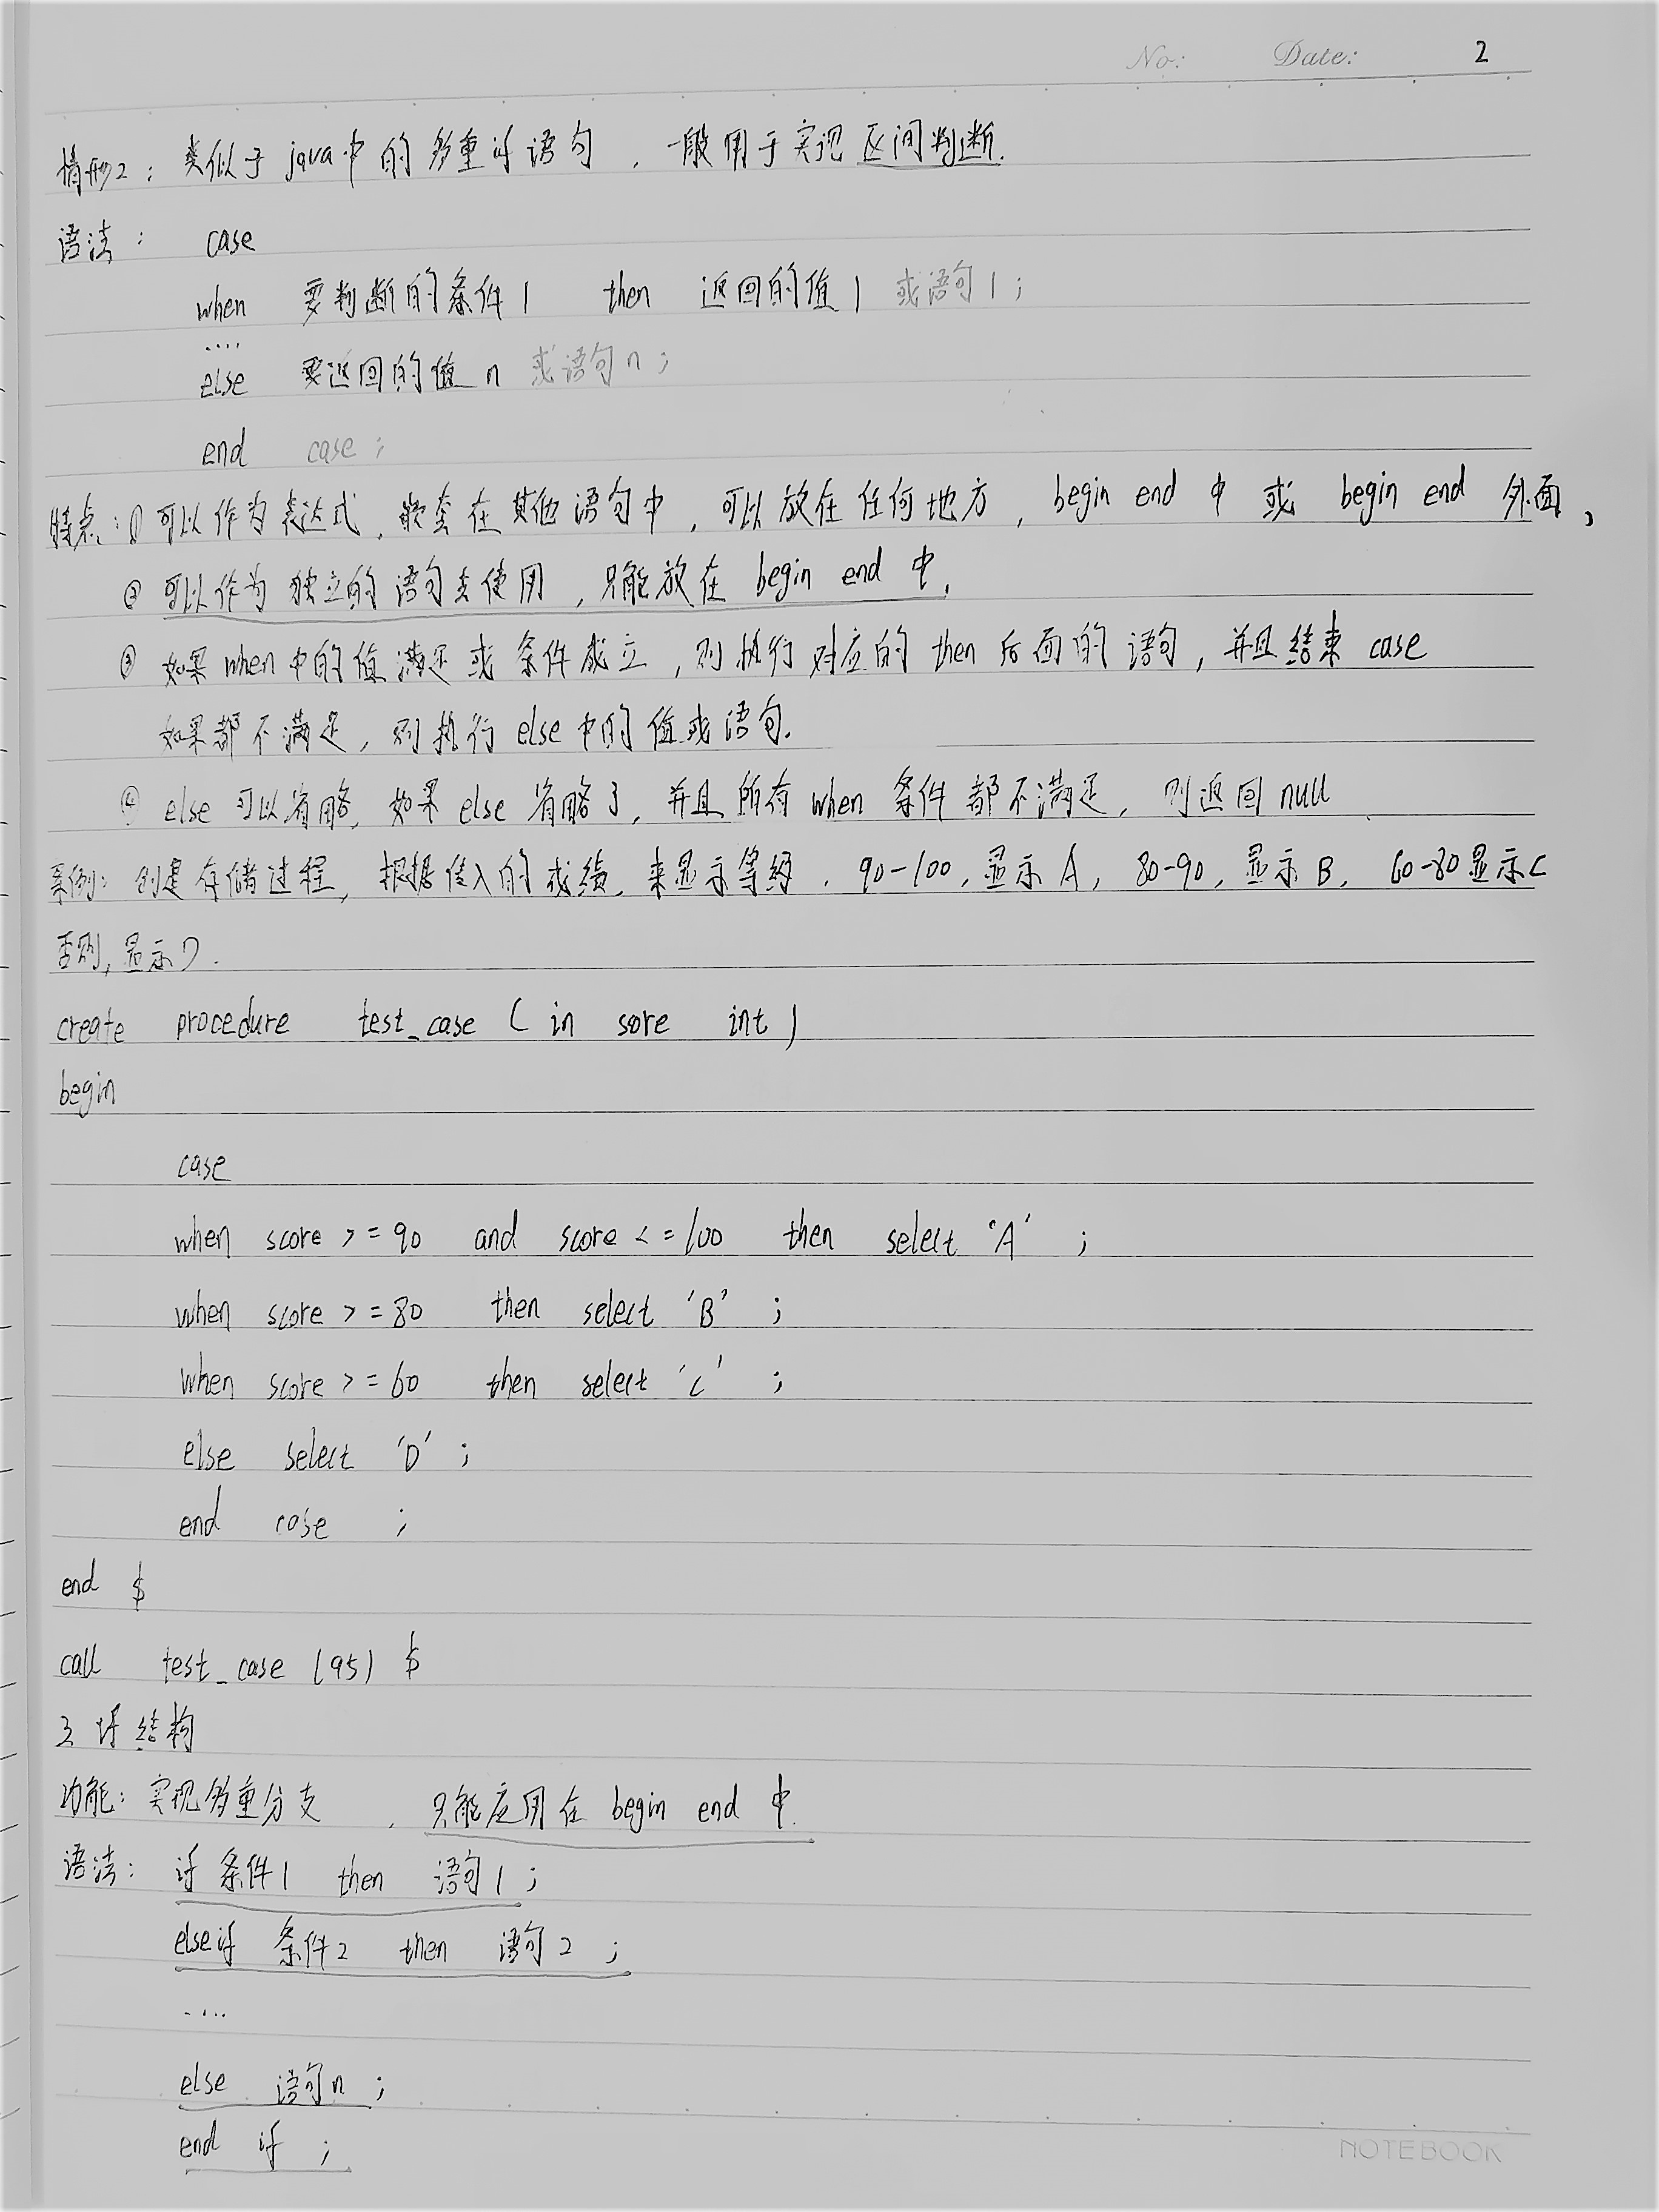 No: Date: 2
情形2：类似于java中的多重if语句，一般用于实现区间判断.
语法： case
when 要判断的条件1 then 返回的值1 或语句1；
....
else 要返回的值n 或语句n；
end case；
特点：① 可以作为表达式，嵌套在其他语句中，可以放在任何地方，begin end 中 或 begin end 外面，
② 可以作为独立的语句去使用，只能放在 begin end 中.
③ 如果when中的值满足或条件成立，则执行对应的then后面的语句，并且结束case
如果都不满足，则执行else中的值或语句.
④ else可以省略，如果else省略了，并且所有when条件都不满足，则返回null
案例：创建存储过程，根据传入的成绩，来显示等级，90-100，显示A，80-90，显示B，60-80显示C
否则，显示D.
create procedure test_case (in sore int)
begin
case
when score >=90 and score <=100 then select 'A' ;
when score >=80 then select 'B' ;
when score >=60 then select 'C' ;
else select 'D' ;
end case ;
end $
call test_case (95) $
3 if结构
功能：实现多重分支，只能应用在 begin end 中.
语法：if 条件1 then 语句1；
elseif 条件2 then 语句2；
....
else 语句n；
end if ；
NOTEBOOK